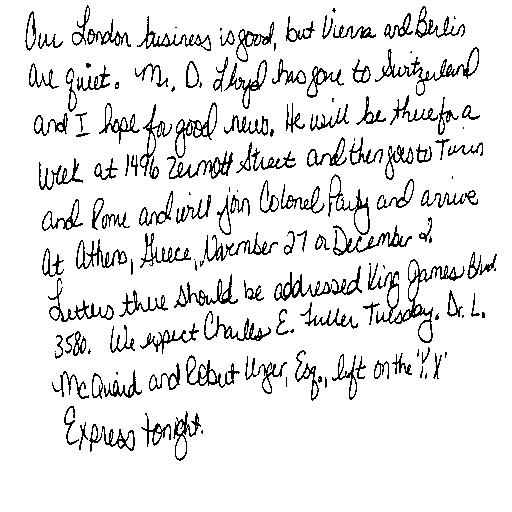 Our London business is good, but Vienna and Berlin
are quiet. Mr. D. Lloyd has gone to Switzerland
and I hope for good news. He will be there for a
week at 1496 Zermott Street and then goes to Turin
and Rome and will join Colonel Parry and arrive
at Athens, Greece, November 27 or December 2.
Letters there should be addressed King James Blvd.
3580. We expect Charles E. Fuller Tuesday. Dr. L.
McQuaid and Robert Unger, Esq., left on the 'Y.X'
Express tonight.